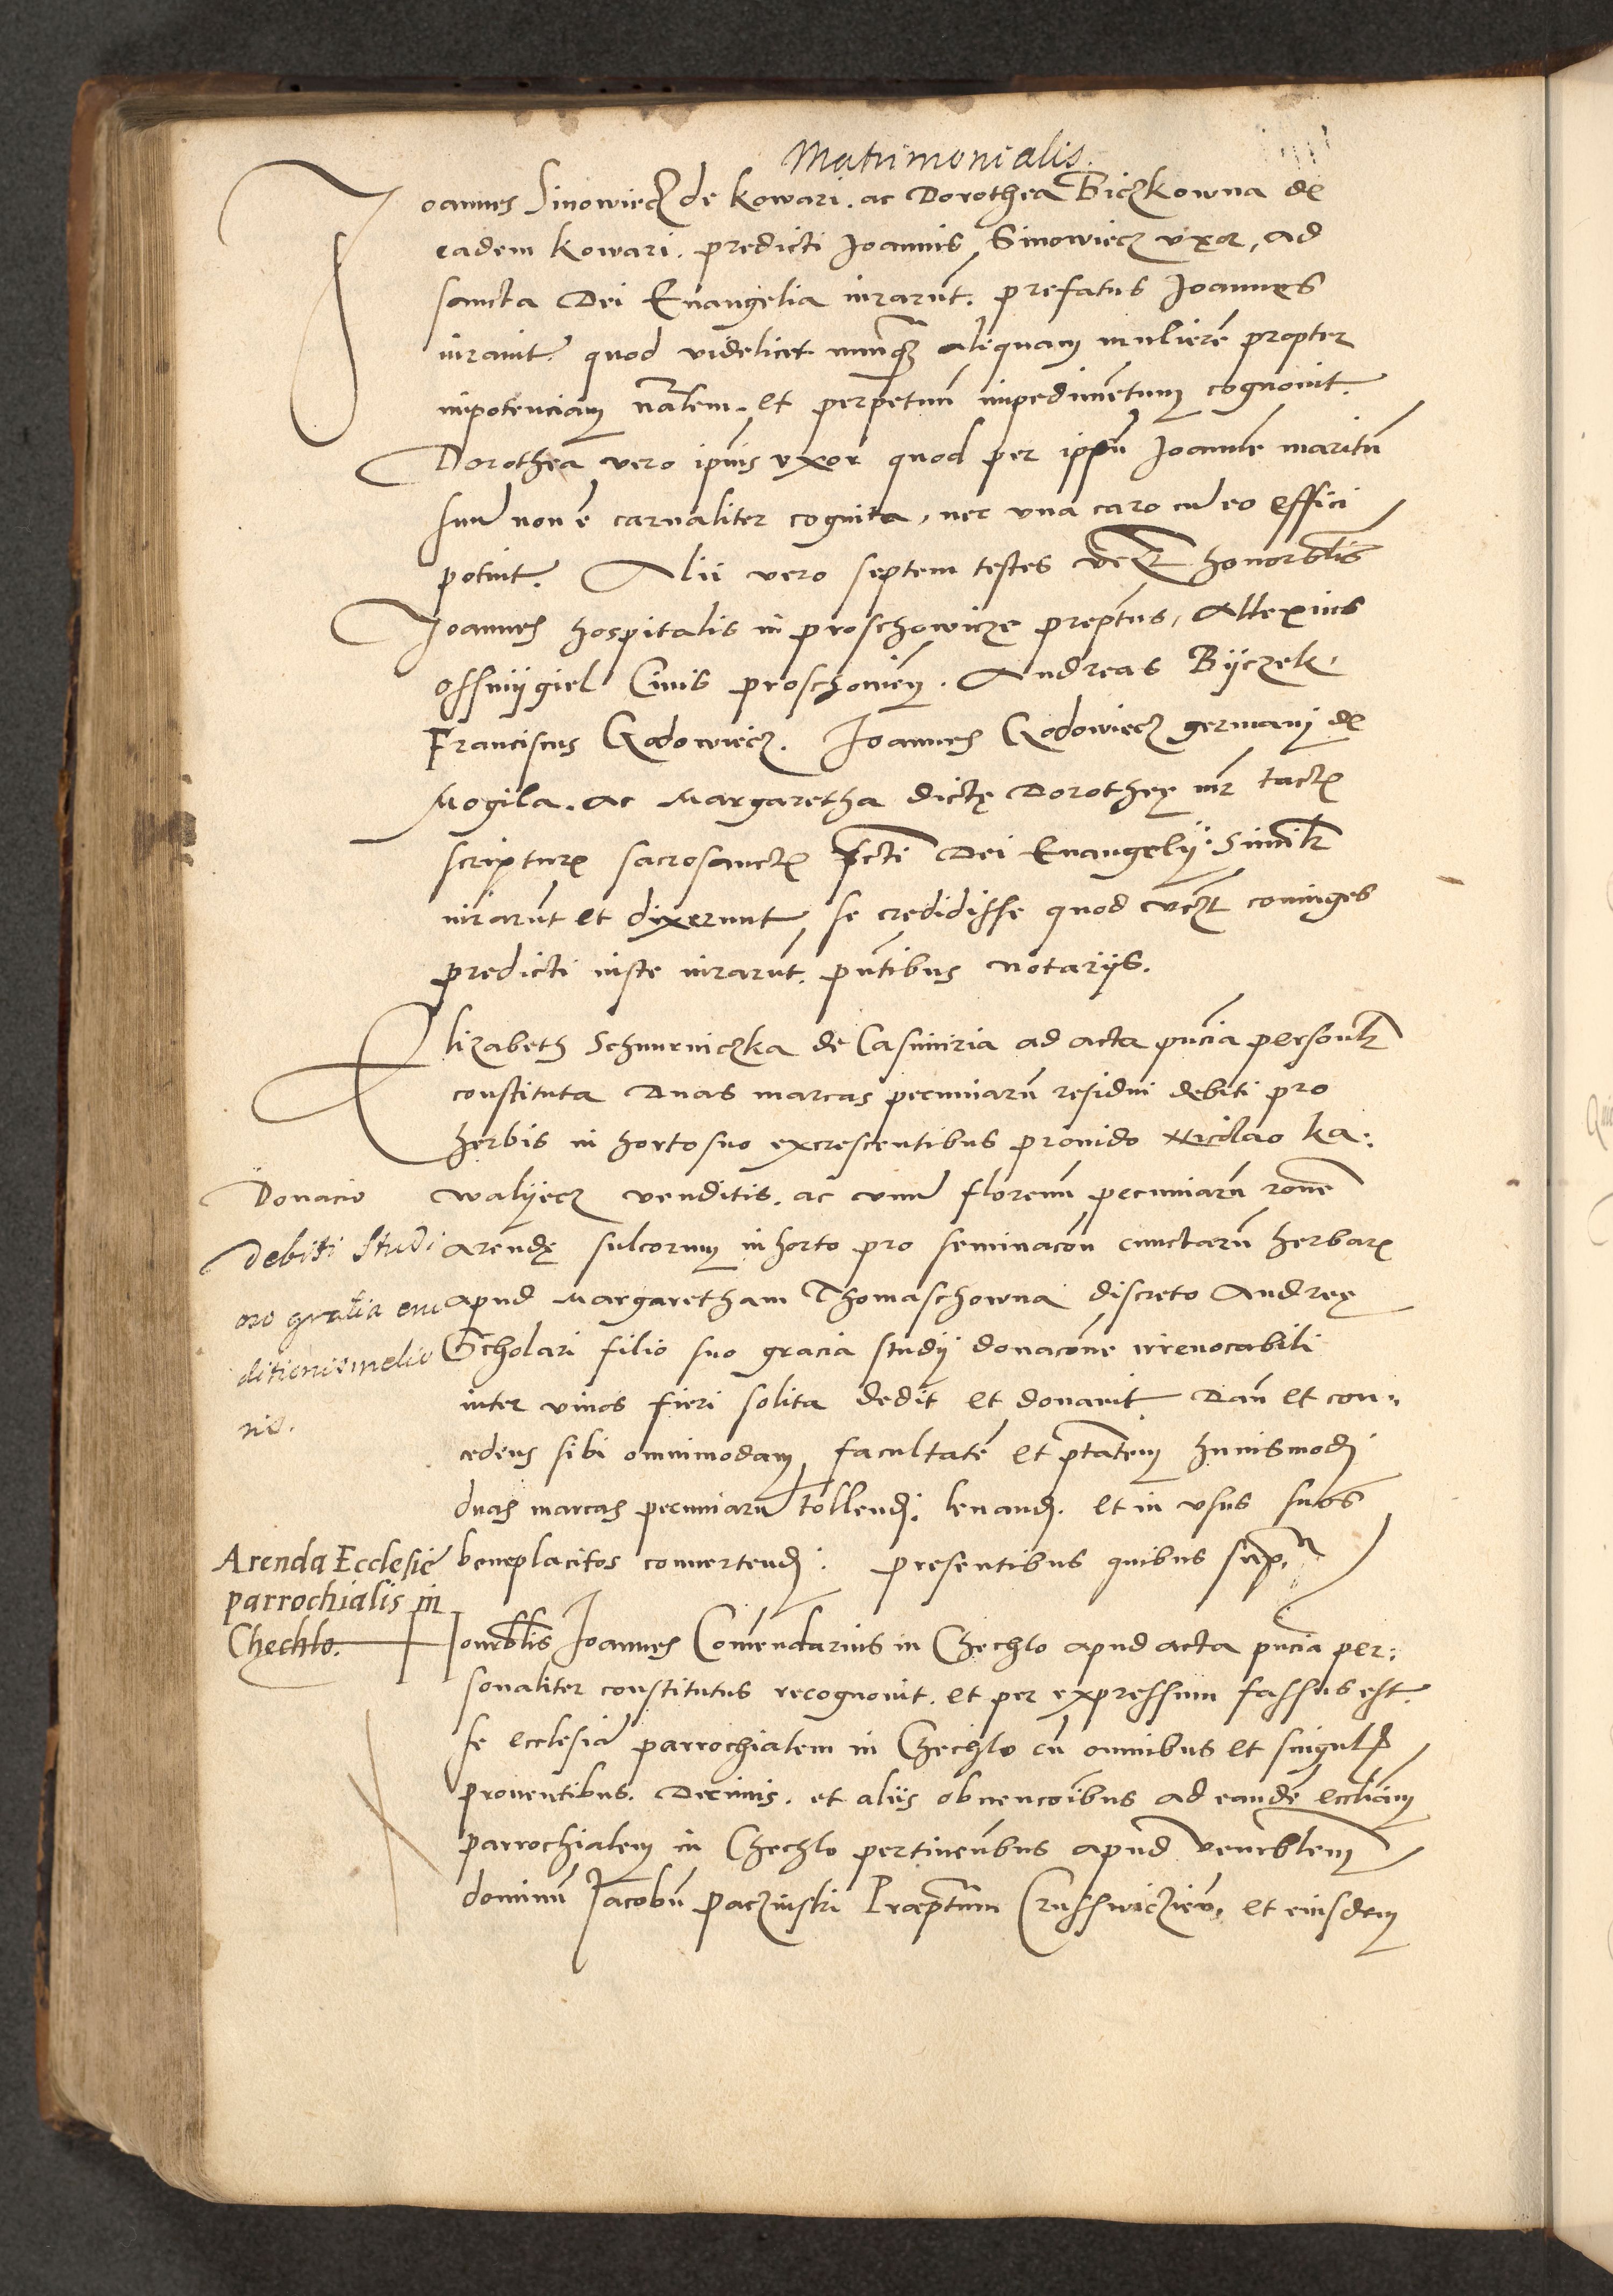 Matrimonialis.
Joannes Sinowiecz de Kowari. ac Dorothea Biczkowna de
eadem Kowari. predicti Joannis Sinowiecz vxor, ad
sancta Dei Euangelia iurarūt. prefatus Joannes
iurauit. quod videlicet nunq̄ aliquam mulierē propter
impotenciam nralem. et perpetuū impedimētum cognouit.
Dorothea vero ipius vxor quod per ippm Joannē maritū
suū non ē carnaliter cognita, nec vna caro cū eo effici
potuit. Alii vero septem testes honorablis
Joannes hospitalis in proschowicze prepts, Allexius
Ossmijgiel Ciuis proschowien. Andreas Bijczek.
Franciscus Godowiecz. Joannes Godowiecz germani de
Mogila. ac Margaretha dictę Dorotheę mr tactis
scripturis sacrosanctis scti Dei Euangelij. Similr
iurarūt et dixerunt, se credidisse quod coniuges
predicti iuste iurarūt. pntibus notarijs.
Elizabeth Schmurniczka de Casimiria ad acta pncia personlr
constituta Duas marcas pecuniarū residui debiti pro
herbis in horto suo excrescentibus prouido Nicolao Ka:
walijecz venditis. ac vnū florenū pecuniarū rone
arendę sulcorum in horto pro seminacōn cunctarū herbarū
apud Margaretham Thomaschowna discreto Andreę
Scholari filio suo gracia studij donacōne irreuocabili
inter viuos fieri solita dedit et donauit Dan et con:
cedens sibi omnimodam facultatē et ptatem huiusmodi
duas marcas pecuniarū tollendi. leuandi. et in vsus suos
beneplacitos conuertendi. presentibus quibus supra
Donacio
debiti studi
oso gratia eru
ditionis melio
ris.
Arenda Ecclesie
parrochialis in
Chechlo.
Honorablis Joannes Comendarius in Chechlo apud acta pncia per:
sonaliter constitutus recognouit. et per expressum fassus est.
se ecclesiā parrochialem in Chechlo cū omnibus et singulis
prouentibus. Decimis. et aliis obuencōibus ad eandē eccliam
parrochialem in Chechlo pertinentibus apud venerablem
dominū Jacobū Paczinski Præptum Crusswiczien. et eiusdem